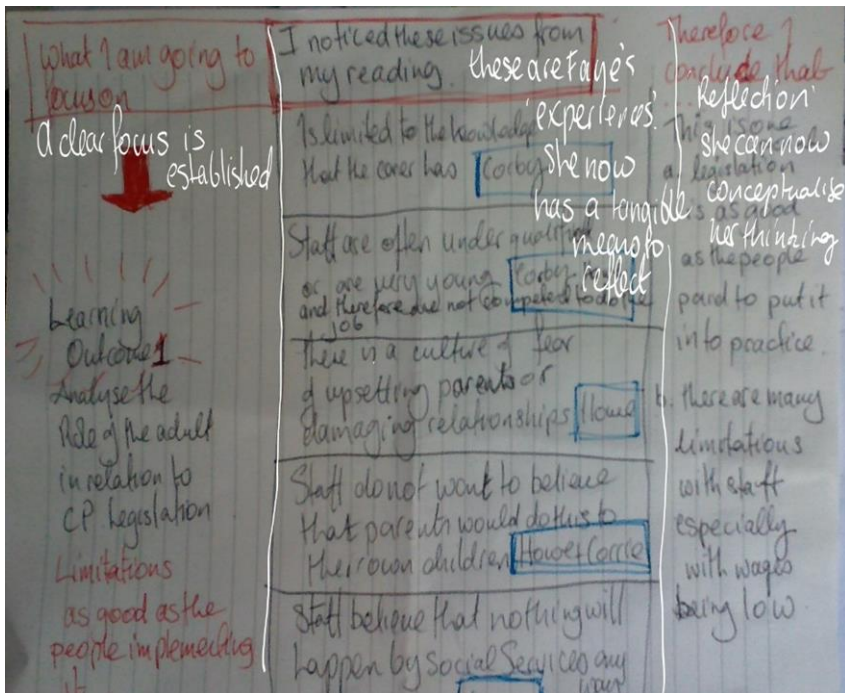 What I am going to
focus on
A clear focus is
established
Learning
Outcome 1
Analyse the
Role of the adult
in relation to
CP Legislation
Limitations
as good as the
people implementing
it
I noticed these issues from
my reading.
these are Faye's
'experiences'.
She now
has a tangible
means to
reflect
Is limited to the knowledge
that the carer has Corby
Staff are often under qualified
or are very young Corby
and therefore are not competed to do the
job
There is a culture of fear
of upsetting parents or
damaging relationships Howe
Staff do not want to believe
that parents would do this to
their own children Howe + Corrie
Staff believe that nothing will
happen by Social Services any
Therefore I
conclude that
Reflection
she can now
conceptualise
her thinking
This is one
a legislation
is as good
as the people
paid to put it
into practice.
b. there are many
limitations
with staff
especially
with wages
being low